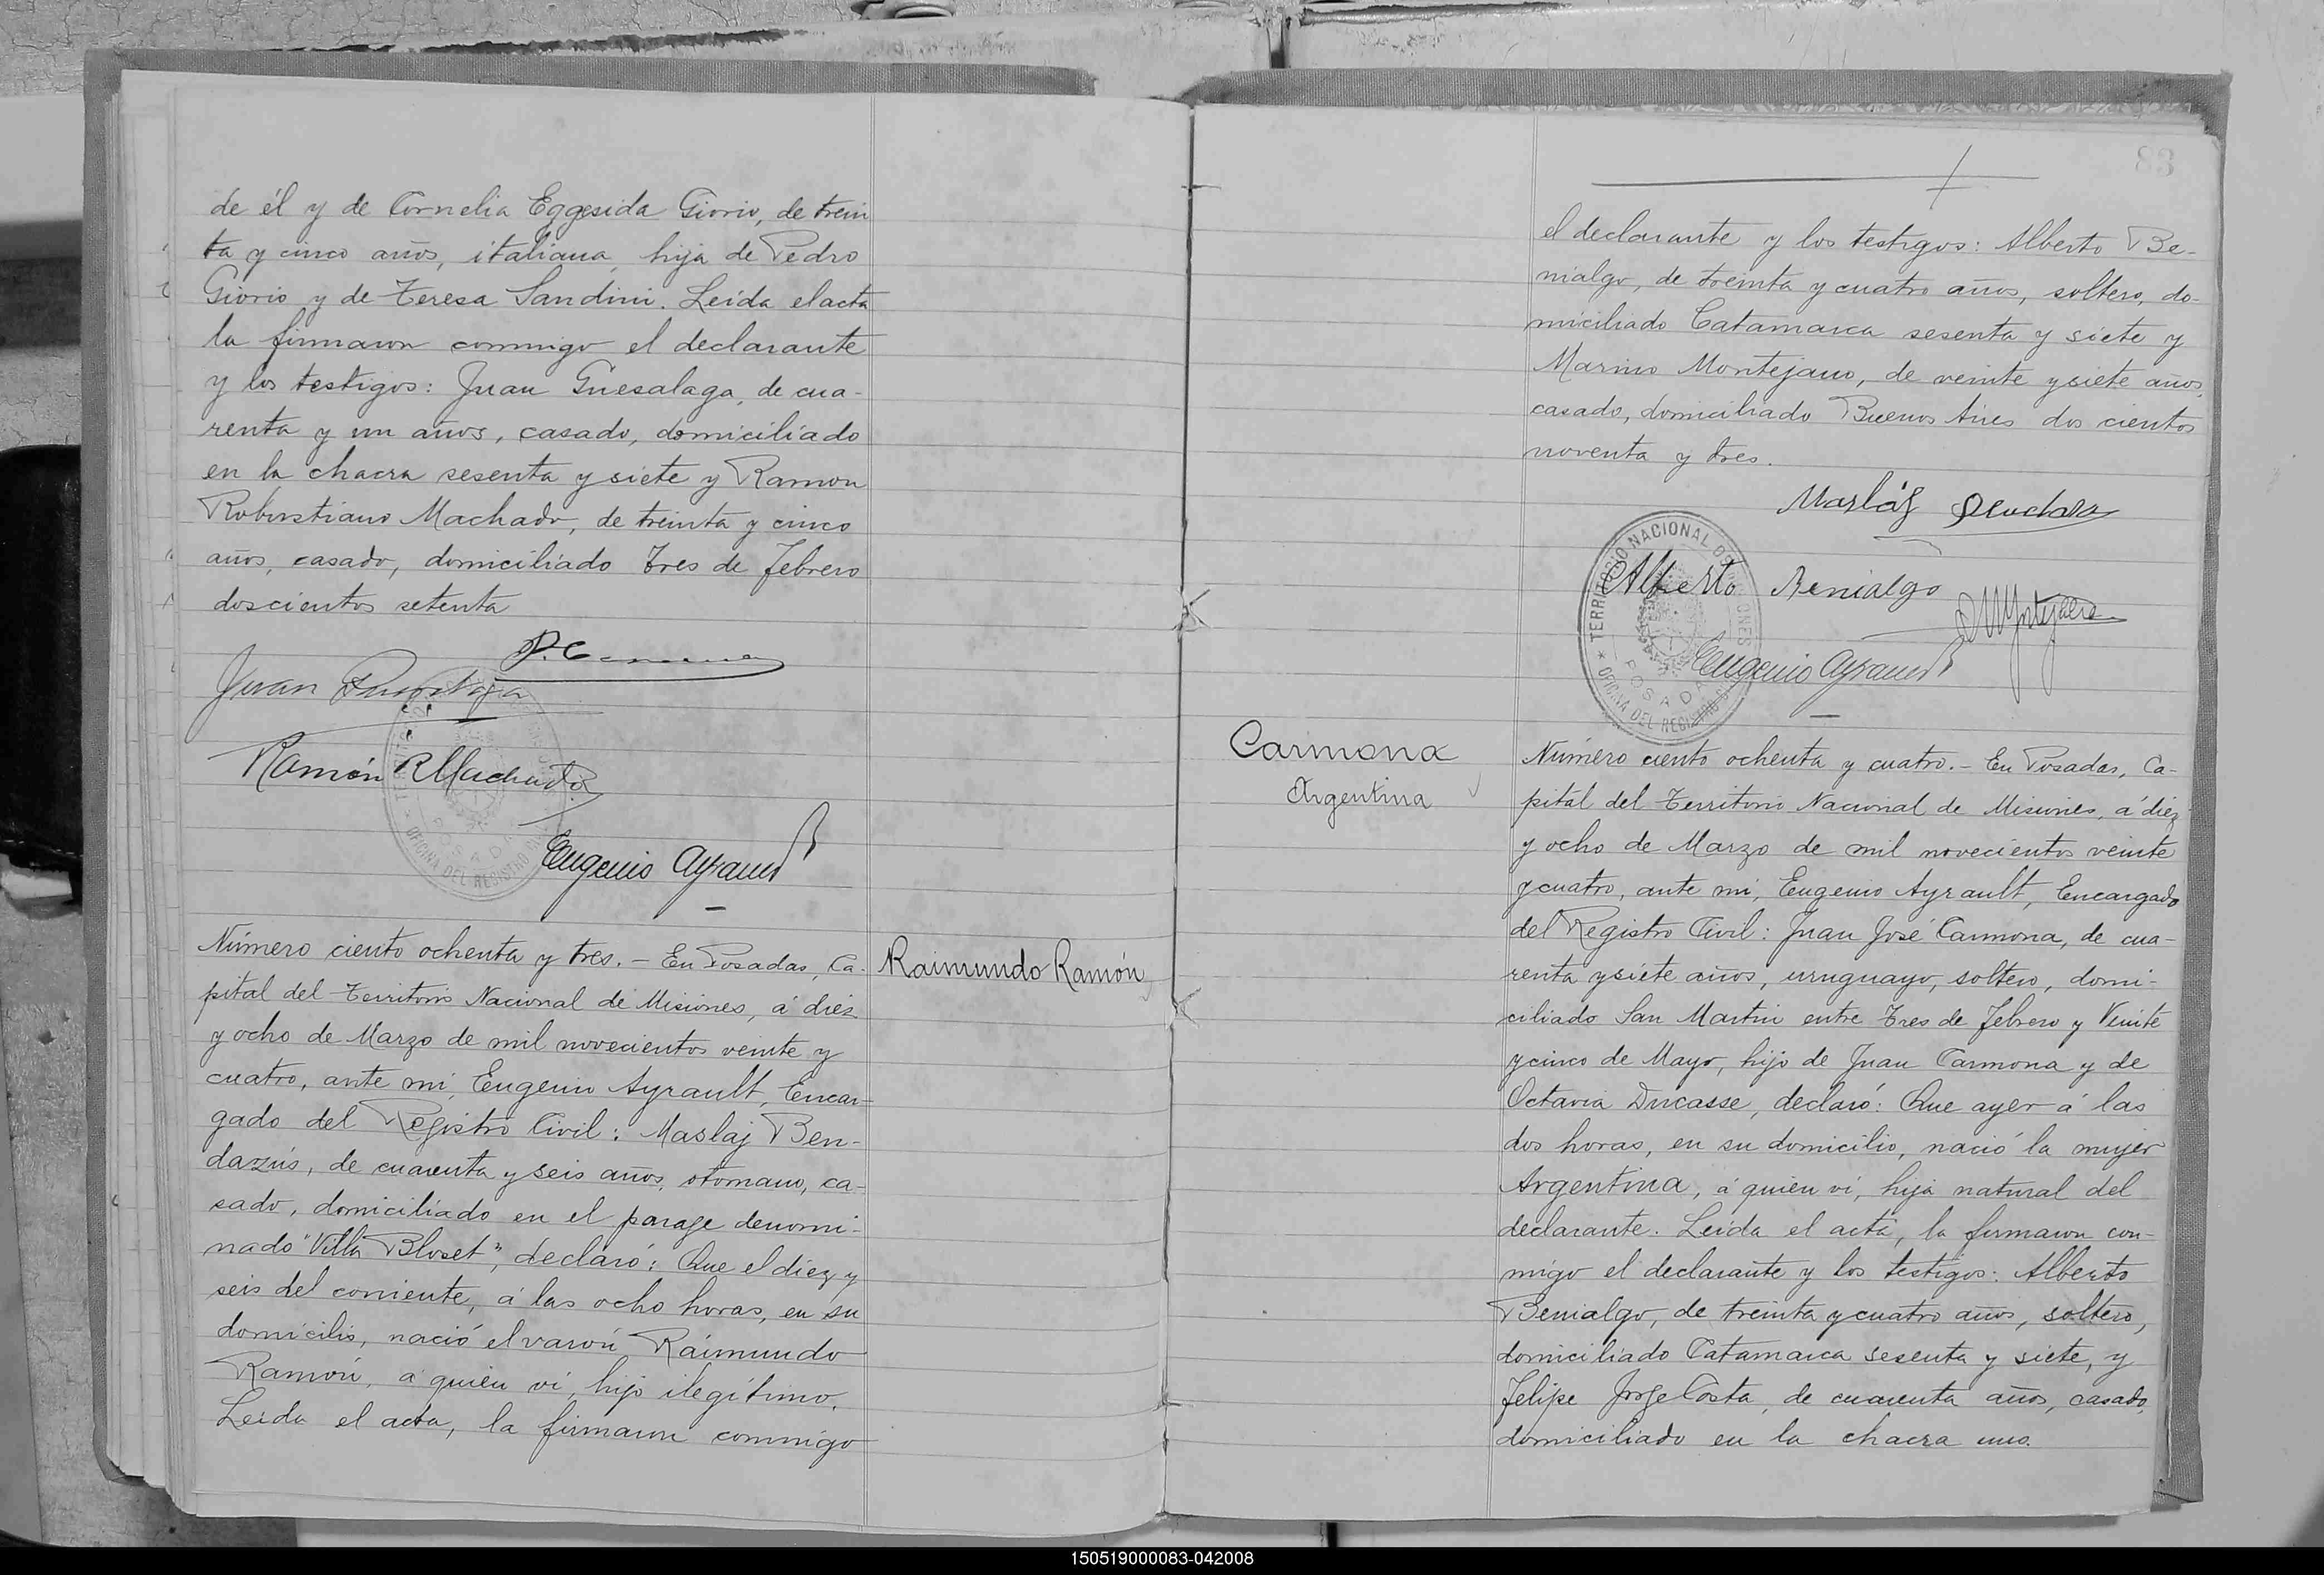 de él y de Cornelia Eggesida Giorio, de trein
ta y cinco años, italiana, hija de Pedro
Giorio y de Teresa Sandini. Leída el acta
la firmaron conmigo el declarante
y los testigos: Juan Guesalaga, de cua-
renta y un años, casado, domiciliado
en la chacra sesenta y siete y Ramon
Robustiano Machado, de treinta y cinco
años, casado, domiciliado Tres de Febrero
doscientos setenta
Juan
Ramón R Machado
Eugenio Ayrault
Número ciento ochenta y tres. - En Posadas, Ca-
pital del Territorio Nacional de Misiones, á diez
y ocho de Marzo de mil novecientos veinte y
cuatro, ante mi, Eugenio Ayrault, Encar-
gado del Registro Civil: Maslaj Ben-
dazús, de cuarenta y seis años, otomano, ca-
sado, domiciliado en el paraje denomi-
nado "Villa Bloset", declaró: Que el diez y
seis del corriente, á las ocho horas, en su
domicilio, nació el varón Raimundo
Ramón, á quien ví, hijo ilegítimo.
Leida el acta, la firmaron conmigo
Raimundo Ramón
83
el declarante y los testigos: Alberto Be-
nialgo, de treinta y cuatro años, soltero, do-
miciliado Catamarca sesenta y siete y
Marino Montejano, de veinte y siete años,
casado, domiciliado Buenos Aires dos cientos
noventa y tres.
Maslaj
TERRITORIO NACIONAL DE MISIONES
POSADAS
OFICINA DEL REGISTRO
Alberto Benialgo
Eugenio Ayrault
Carmona
Argentina
Número ciento ochenta y cuatro. - En Posadas, Ca-
pital del Territorio Nacional de Misiones, á diez
y ocho de Marzo de mil novecientos veinte
y cuatro, ante mi, Eugenio Ayrault, Encargado
del Registro Civil: Juan José Carmona, de cua-
renta y siete años, uruguayo, soltero, domi-
ciliado San Martin entre Tres de Febrero y Veinte
y cinco de Mayo, hijo de Juan Carmona y de
Octavia Ducasse, declaró: Que ayer á las
dos horas, en su domicilio, nació la mujer
Argentina, á quien ví, hija natural del
declarante. Leida el acta, la firmaron con-
migo el declarante y los testigos: Alberto
Benialgo, de treinta y cuatro años, soltero,
domiciliado Catamarca sesenta y siete, y
Felipe Jorge Costa, de cuarenta años, casado,
domiciliado en la chacra uno.
150519000083-042008